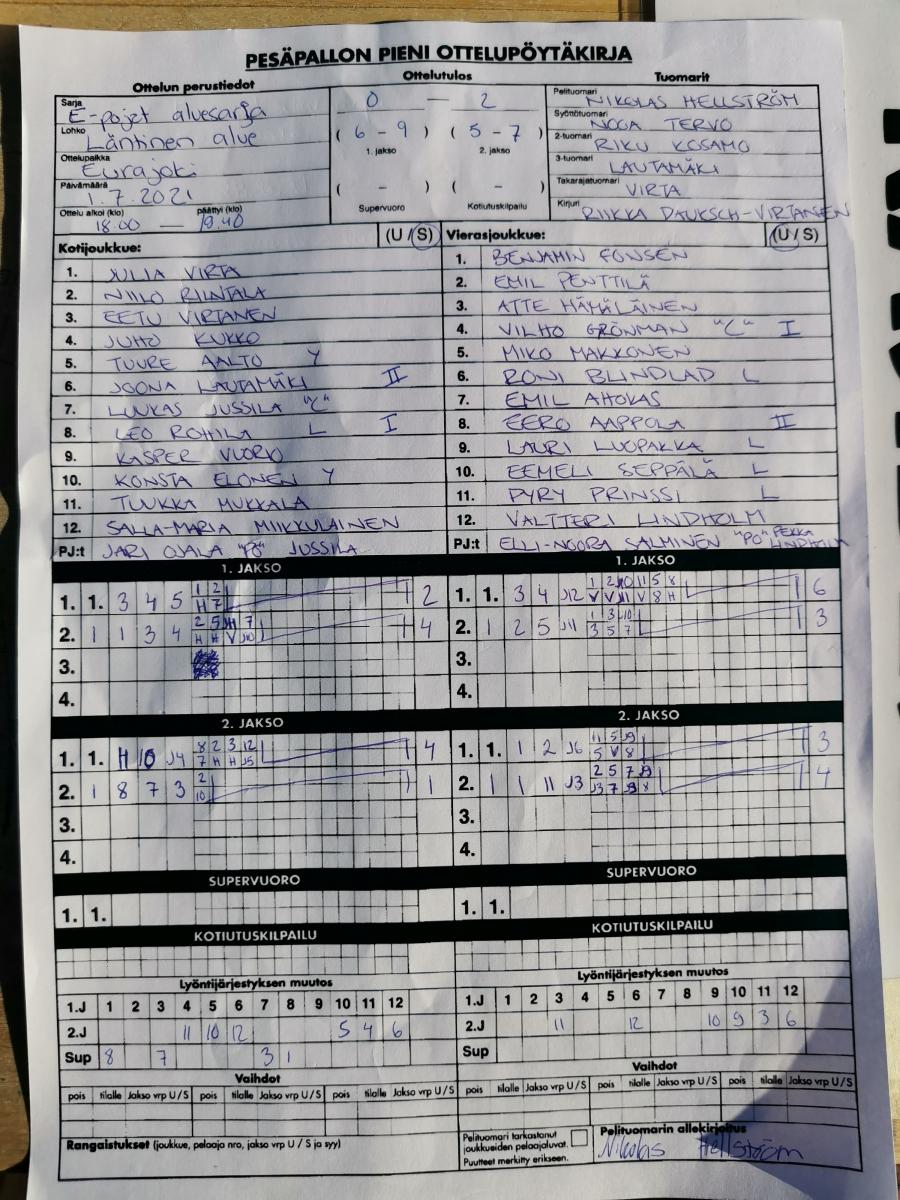 PESÄPALLON PIENI OTTELUPÖYTÄKIRJA
Ottelun perustiedot
Ottelutulos
Tuomarit
Sarja E-pojat aluesarja
Lohko Läntinen alue
Ottelupaikka Eurajoki
Päivämäärä 1.7.2021
Ottelu alkoi (klo) päättyi (klo)
18.00 — 19.40
0 — 2
( 6 - 9 ) ( 5 - 7 )
1. jakso 2. jakso
( - ) ( - )
Supervuoro Kotiutuskilpailu
Pelituomari NIKOLAS HELLSTRÖM
Syöttötuomari NOOA TERVO
2-tuomari RIKU KOSAMO
3-tuomari LAUTAMÄKI
Takarajatuomari VIRTA
Kirjuri RIIKKA DAUKSCH-VIRTANEN
Kotijoukkue: (U / S)
1. JULIA VIRTA
2. NIILO RINTALA
3. EETU VIRTANEN
4. JUHO KUKKO
5. TUURE AALTO Y
6. JOONA LAUTAMÄKI II
7. LUUKAS JUSSILA "C"
8. LEO ROHILA L I
9. KASPER VUORIO
10. KONSTA ELONEN Y
11. TUUKKA MUKKALA
12. SALLA-MARIA MIIKKULAINEN
PJ:t JARI OJALA "PO" JUSSILA
Vierasjoukkue: (U / S)
1. BENJAMIN FONSEN
2. EMIL PENTTILÄ
3. ATTE HÄMÄLÄINEN
4. VILHO GRÖNMAN "C" I
5. MIKO MAKKONEN
6. RONI BLINDLAD L
7. EMIL AHOKAS
8. EERO AAPPOLA II
9. LAURI LUOPAKKA L
10. EEMELI SEPPÄLÄ L
11. PYRY PRINSSI L
12. VALTTERI LINDHOLM
PJ:t ELLI-NOORA SALMINEN "PO" PEKKA LINDHOLM
1. JAKSO
1. 1. 3 4 5 2
1 2
H 7
2. 1 1 3 4 4
3.
4.
1. JAKSO
1. 1. 3 4 J12 6
2. 1 2 5 J11 3
1 3 J10
3 5 7
3.
4.
2. JAKSO
1. 1. H 10 J4 4
8 2 3 12
7 H H J5
2. 1 8 7 3 1
2
10
3.
4.
2. JAKSO
1. 1. 1 2 J6 3
11 5 J9
5 V 8
2. 1 1 11 J3 4
3.
4.
SUPERVUORO
1. 1.
SUPERVUORO
1. 1.
KOTIUTUSKILPAILU
KOTIUTUSKILPAILU
Lyöntijärjestyksen muutos
1.J 1 2 3 4 5 6 7 8 9 10 11 12
2.J 11 10 12 5 4 6
Sup 8 7 3 1
Lyöntijärjestyksen muutos
1.J 1 2 3 4 5 6 7 8 9 10 11 12
2.J 11 12 10 9 3 6
Sup
Vaihdot
pois tilalle Jakso vrp U / S pois tilalle Jakso vrp U / S pois tilalle Jakso vrp U / S
Vaihdot
pois tilalle Jakso vrp U / S pois tilalle Jakso vrp U / S pois tilalle Jakso vrp U / S
Rangaistukset (joukkue, pelaaja nro, jakso vrp U / S ja syy)
Pelituomari tarkastanut
joukkueiden pelaajaluvat.
Puutteet merkitty erikseen.
Pelituomarin allekirjoitus
Nikolas Hellström